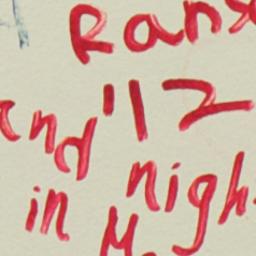 Rans
and '12
nigh
in M